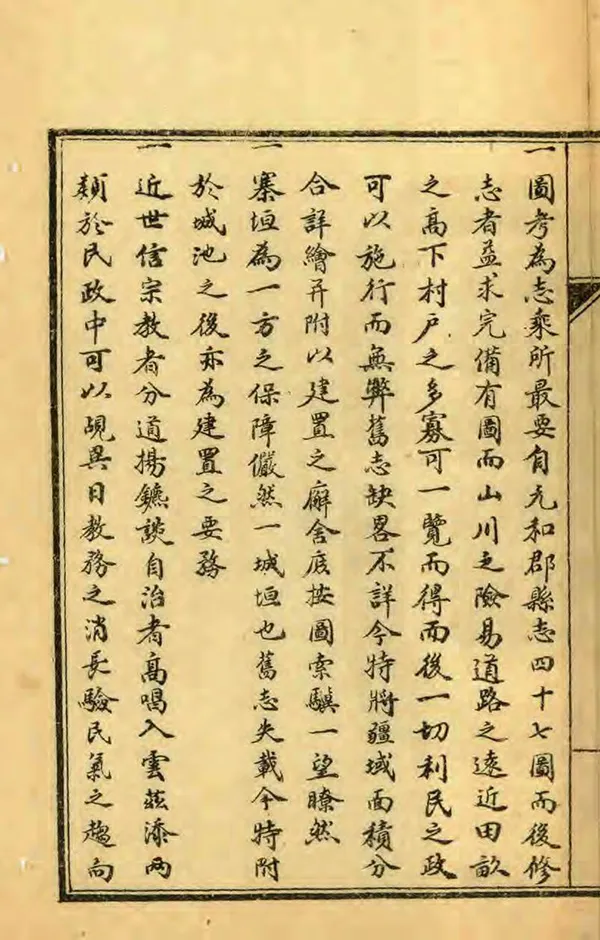 一圖考為志乘所最要自元和郡縣志四十七圖而後修
志者益求完備有圖而山川之險易道路之遠近田畝
之高下村戶之多寡可一覽而得而後一切利民之政
可以施行而無弊舊志缺畧不詳今特將疆域面積分
合詳繪并附以建置之廨舍底按圖索驥一望瞭然
一寨垣為一方之保障儼然一城垣也舊志失載今特附
於城池之後亦為建置之要務
一近世信宗教者分道揚鑣談自治者高唱入雲茲添兩
類於民政中可以覘異日教務之消長驗民氣之趨向